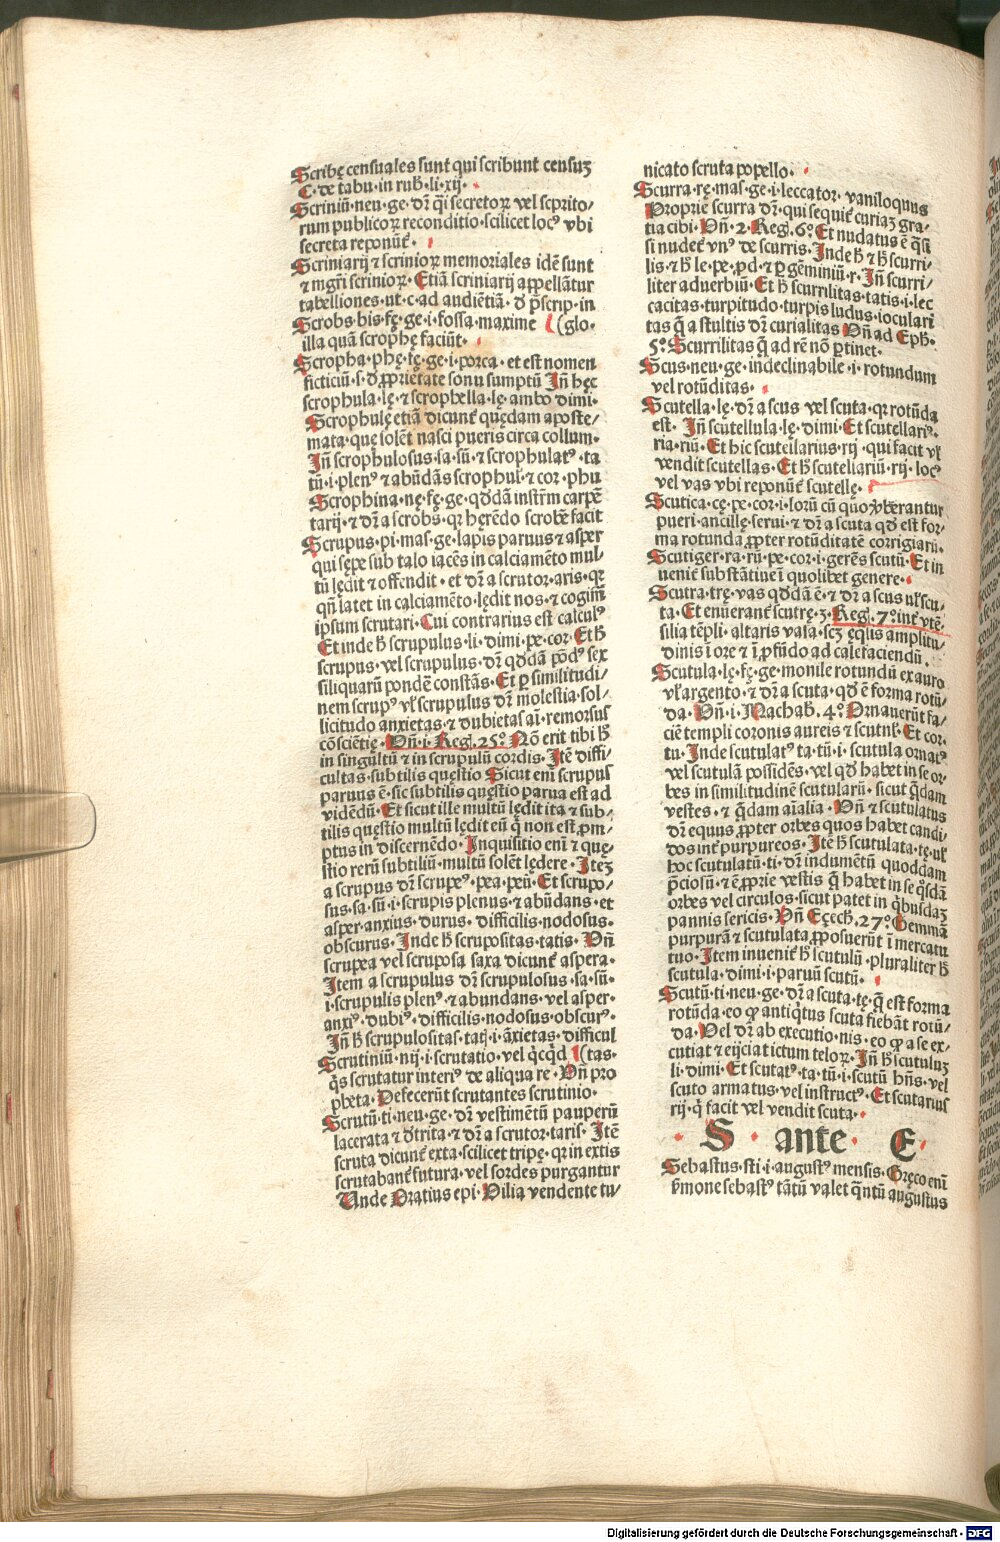 Scribę censuales sunt qui scribunt censuꝫ
C· de tabu· in rub̄· li· xij·
Scriniū· neu· ge· dr̄ q̇si secretoꝝ vel scprito/
rum publicoꝝ reconditio· scilicet locꝰ vbi
secreta reponūt᷒·
Scriniarij ⁊ scrinioꝝ memoriales idē sunt
⁊ mgr̄i scrinioꝝ· Etiā scriniarij appellātur
tabelliones· ut· c· ad audiētiā· d̄ p̄scrip· in
Scrobs· bis· fę· ge· i· fossa· maxime (glo·
illa quā scrophę faciūt·
Scropha· phę· fę· ge· i· porca· et est nomen
ficticiū· s· d̄ ꝓprietate sonu sumptū Jn̄ hęc
scrophula· lę· ⁊ scrophella· lę· ambo dimi·
Scrophulę etiā dicunt᷒ quędam aposte/
mata· que solēt nasci pueris circa collum·
Jn̄ scrophulosus· sa· sū· ⁊ scrophulatꝰ· ta
tū· i· plenꝰ ⁊ abūdās scrophul᷒· ⁊ cor· phu
Scrophina· nę· fę· ge· qd̄dā instr̄m carpē
tarij· ⁊ dr̄ a scrobs· qꝛ hęrēdo scrobē facit
Scrupus· pi· mas· ge· lapis paruus ⁊ asper
qui sępe sub talo iacēs in calciamēto mul/
tū lędit ⁊ offendit· et dr̄ a scrutor· aris· qꝛ
qn̄ latet in calciamēto· lędit nos· ⁊ cogim̄
ipsum scrutari· Cui contrarius est calculꝰ
Et inde h̄ scrupulus· li· dimi· pe· cor· Et h̄
scrupus· vel scrupulus· dr̄ qd̄dā pōdꝰ sex
siliquarū pondē constās· Et ꝑ similitudi/
nem scrupꝰ vl᷒ scrupulus dr̄ molestia· sol/
licitudo anxietas· ⁊ dubietas aĩ· remorsus
cōsciētię· Vn̄· i· Reg· 25º· Nō erit tibi h̄
in singultū ⁊ in scrupulū cordis· Jtē diffi/
cultas· subtilis quęstio Sicut enĩ scrupus
paruus ē· sic subtilis quęstio parua est ad
vidēdū· Et sicut ille multū lędit ita ⁊ sub/
tilis quęstio multū lędit eū q̇ non est ꝓm/
ptus in discernēdo· Jnquisitio enĩ ⁊ quę/
stio rerū subtiliū· multū solēt lędere· Jteꝫ
a scrupus dr̄ scrupeꝰ· pea· peū· Et scrupo/
sus· sa· sū· i· scrupis plenus· ⁊ abūdans· et
asper· anxius· durus· difficilis· nodosus·
obscurus· Jnde h̄ scrupositas· tatis· Vn̄
scrupea vel scruposa saxa dicunt᷒ aspera·
Jtem a scrupulus dr̄ scrupulosus· sa· sū·
i· scrupulis plenꝰ· ⁊ abundans· vel asper·
anxiꝰ· dubiꝰ· difficilis· nodosus· obscurꝰ·
Jn̄ h̄ scrupulositas· tatĩ· i· āxietas· difficul
Scrutiniū· nij· i· scrutatio· vel q̇cq̇d (tas·
q̇s scrutatur interiꝰ de aliqua re· Vn̄ pro
pheta· Defecerūt scrutantes scrutinio·
Scrutū· ti· neu· ge· dr̄ vestimētū pauperū
lacerata ⁊ d̄trita· ⁊ dr̄ a scrutor· taris· Jtē
scruta dicunt᷒ exta· scilicet tripę· qꝛ in extis
scrutabant᷒ futura· vel sordes purgantur
Unde Oratius epi· Vilia vendente tu/
nicato scruta popello·
Scurra· rę· mas· ge· i· leccator· vaniloquus
Proprie scurra dr̄· qui sequit᷒ curiaꝫ gra/
tia cibi· Vn̄· 2· Reg· 6º· Et nudatus ē q̄si
si nudet᷒ vnꝰ de scurris· Jnde h̄ ⁊ h̄ scurri/
lis· ⁊ h̄ le· pe· ꝓd· ⁊ ꝑ gēminiū· r· Jn̄ scurri/
liter aduerbiū· Et h̄ scurrilitas· tatis· i· lec
cacitas· turpitudo· turpis ludus· ioculari
tas q̄ a stultis dr̄ curialitas Vn̄ ad Eph·
5º· Scurrilitas q̄ ad rē nō ꝑtinet·
Scus· neu· ge· indeclinabile· i· rotundum
vel rotūditas·
Scutella· lę· dr̄ a scus vel scuta· qꝛ rotūda
est· Jn̄ scutellula· lę· dimi· Et scutellariꝰ·
ria· riū· Et hic scutellarius· rij· qui facit vl᷒
vendit scutellas· Et h̄ scutellariū· rij· locꝰ
vel vas vbi reponūt᷒ scutellę·
Scutica· cę· pe· cor· i· lorū cū quo v̄berantur
pueri· ancillę· serui· ⁊ dr̄ a scuta qd̄ est for/
ma rotunda ꝓpter rotūditatē corrigiarū·
Scutiger· ra· rū· pe· cor· i· gerēs scutū· Et in
uenit᷒ substātiue ĩ quolibet genere·
Scutra· trę· vas qd̄dā ē· ⁊ dr̄ a scus ul᷒ scu/
ta· Et enuerant᷒ scutrę· 3· Reg· 7º· int᷒ vtē/
silia tēpli· altaris vasa· scꝫ ęq̄lis amplitu/
dinis ĩ ore ⁊ ĩ ꝓfūdo ad calefaciendū·
Scutula· lę· fę· ge· monile rotundū ex auro
vl᷒ argento· ⁊ dr̄ a scuta· qd̄ ē forma rotū/
da· Vn̄· i· Machab̄· 4º· Ornauerūt fa/
ciē templi coronis aureis ⁊ scutul᷒· Et cor·
tu· Jnde scutulatꝰ· ta· tū· i· scutula ornatꝰ
vel scutulā possidēs· vel qd̄ habet in se or/
bes in similitudinē scutularū· sicut q̄dam
vestes· ⁊ q̄dam aĩalia· Vn̄ ⁊ scutulatus
dr̄ equus ꝓpter orbes quos habet candi/
dos int᷒ purpureos· Jtē h̄ scutulata· tę· ul᷒
hoc scutulatū· ti· dr̄ indumētū quoddam
p̄ciosū· ⁊ ē ꝓprie vestis q̄ habet in se q̄sdā
orbes vel circulos· sicut patet in q̇busdaꝫ
pannis sericis· Vn̄ Eçech· 27º· Gemmā
purpurā ⁊ scutulata ꝓposuerūt ĩ mercatu
tuo· Jtem inuenit᷒ h̄ scutulū· pluraliter h̄
scutula· dimi· i· paruū scutū·
Scutū· ti· neu· ge· dr̄ a scuta· tę· q̄ est forma
rotūda· eo ꝙ antiq̇tus scuta fiebāt rotū/
da· Vel dr̄ ab executio· nis· eo ꝙ a se ex/
cutiat ⁊ eijciat ictum teloꝝ· Jn̄ h̄ scutuluꝫ
li· dimi· Et scutatꝰ· ta· tū· i· scutū hn̄s· vel
scuto armatus· vel instructꝰ· Et scutarius
rij· q̇ facit vel vendit scuta·
S ante E
Sebastus· sti· i· augustꝰ mensis· Gręco enĩ
s̄mone sebastꝰ tātū valet q̄ntū augustus
Digitalisierung gefördert durch die Deutsche Forschungsgemeinschaft - DFG